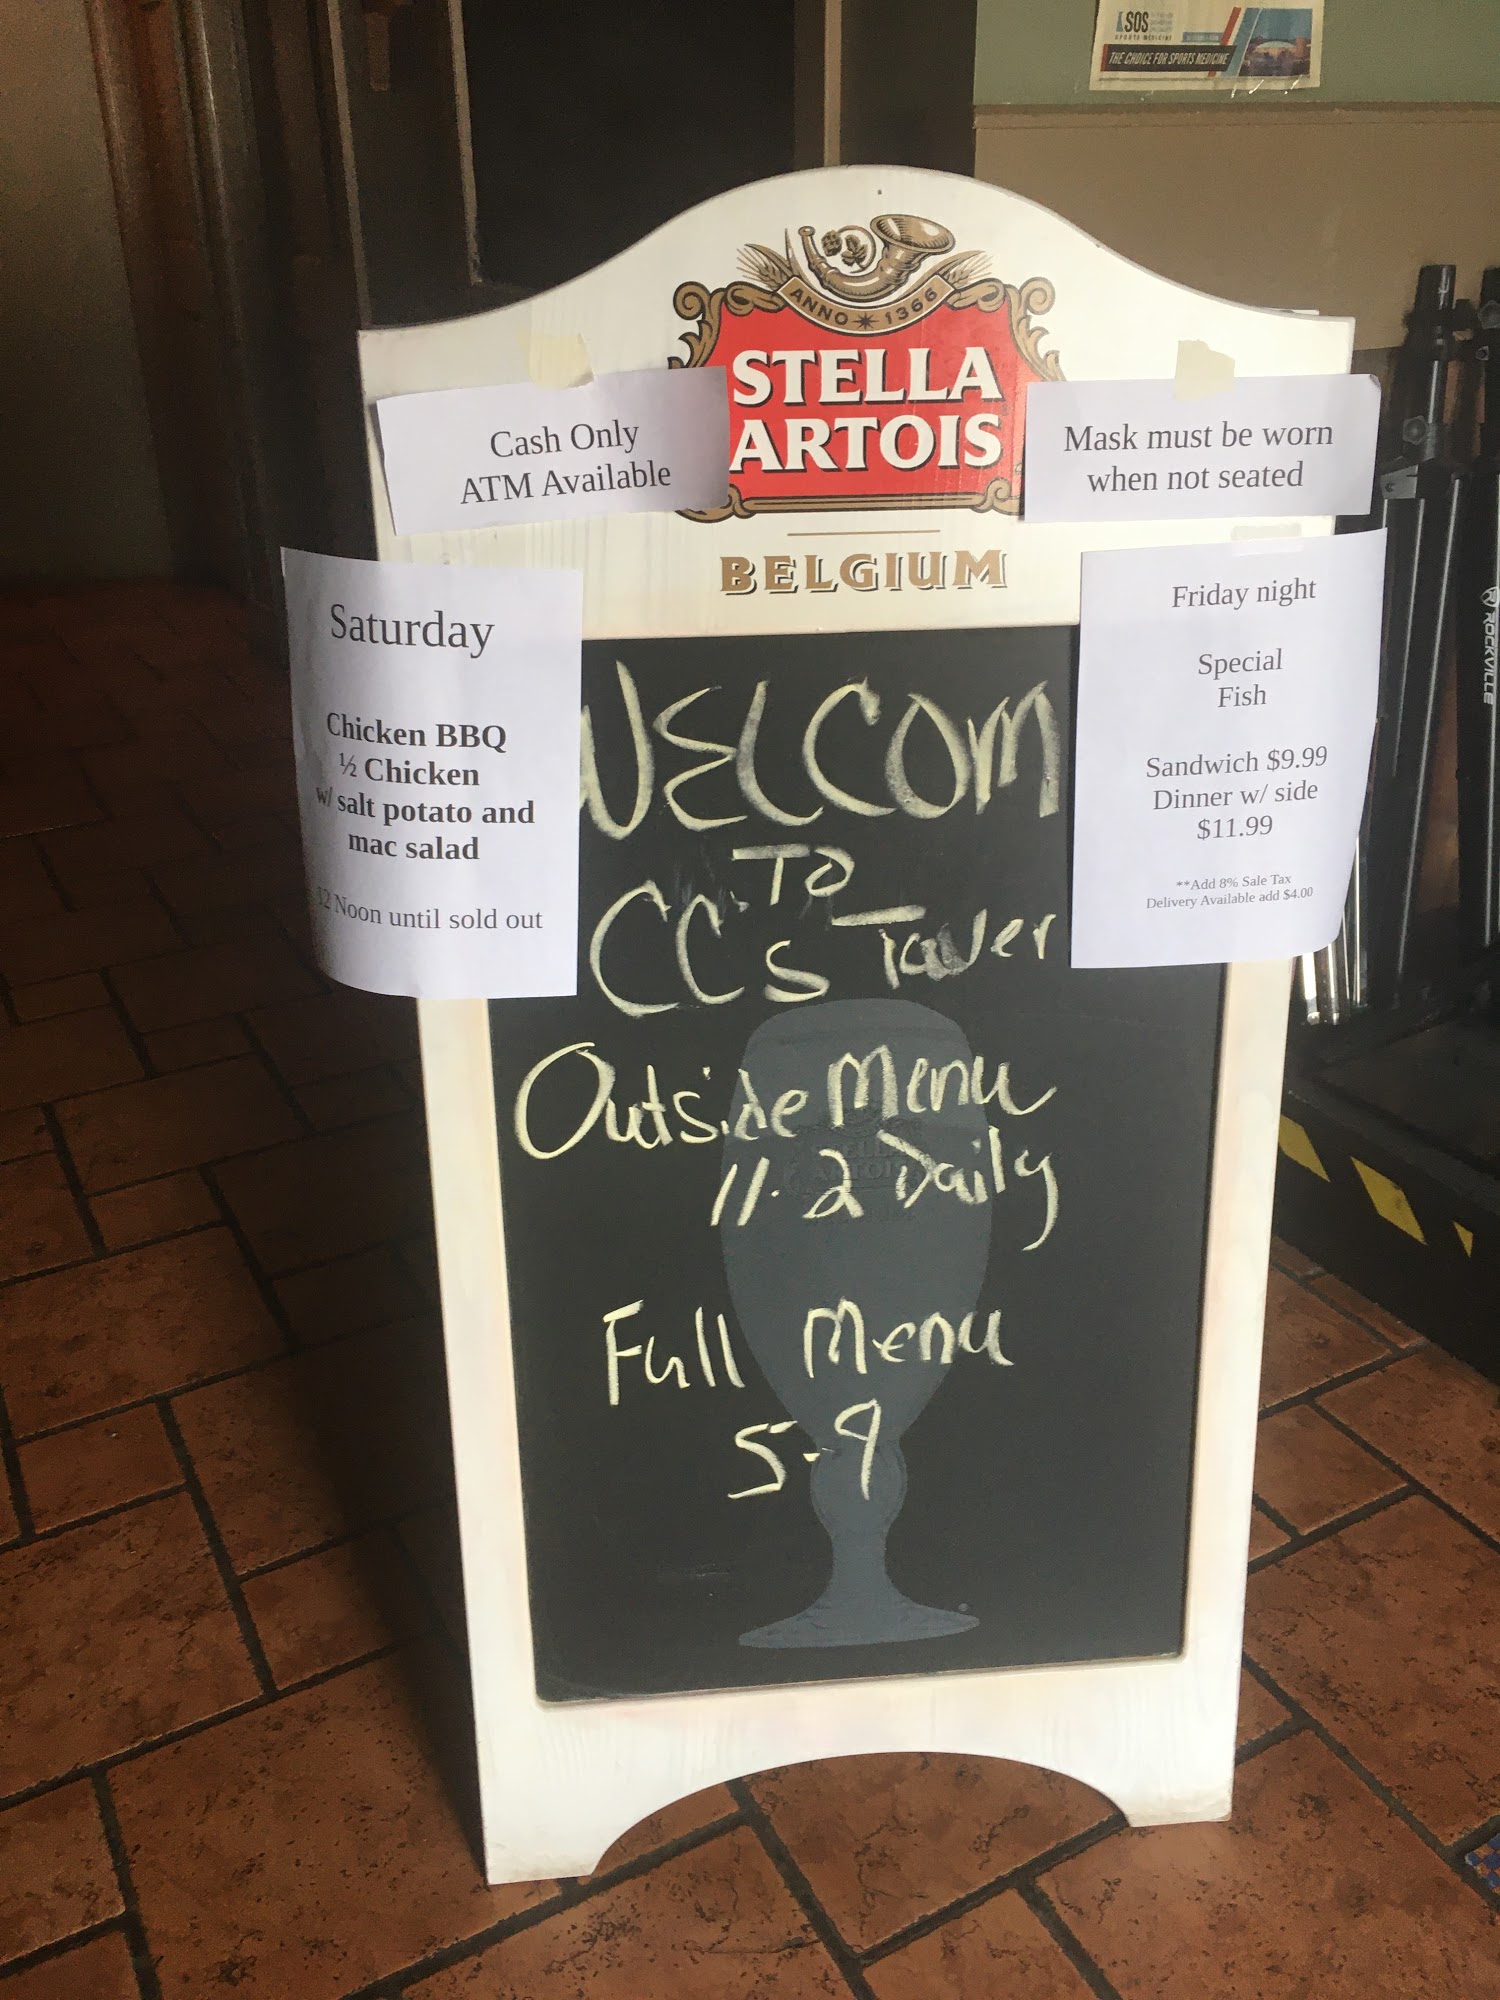 SOS
SPORTS MEDICINE
THE CHOICE FOR SPORTS MEDICINE
ANNO 1366
STELLA
ARTOIS
BELGIUM
Cash Only
ATM Available
Mask must be worn
when not seated
Saturday
Chicken BBQ
½ Chicken
w/ salt potato and
mac salad
12 Noon until sold out
Friday night
Special
Fish
Sandwich $9.99
Dinner w/ side
$11.99
**Add 8% Sale Tax
Delivery Available add $4.00
WELCOM
TO
CCs Taver
Outside Menu
11-2 Daily
Full Menu
5-9
ROCKVILLE